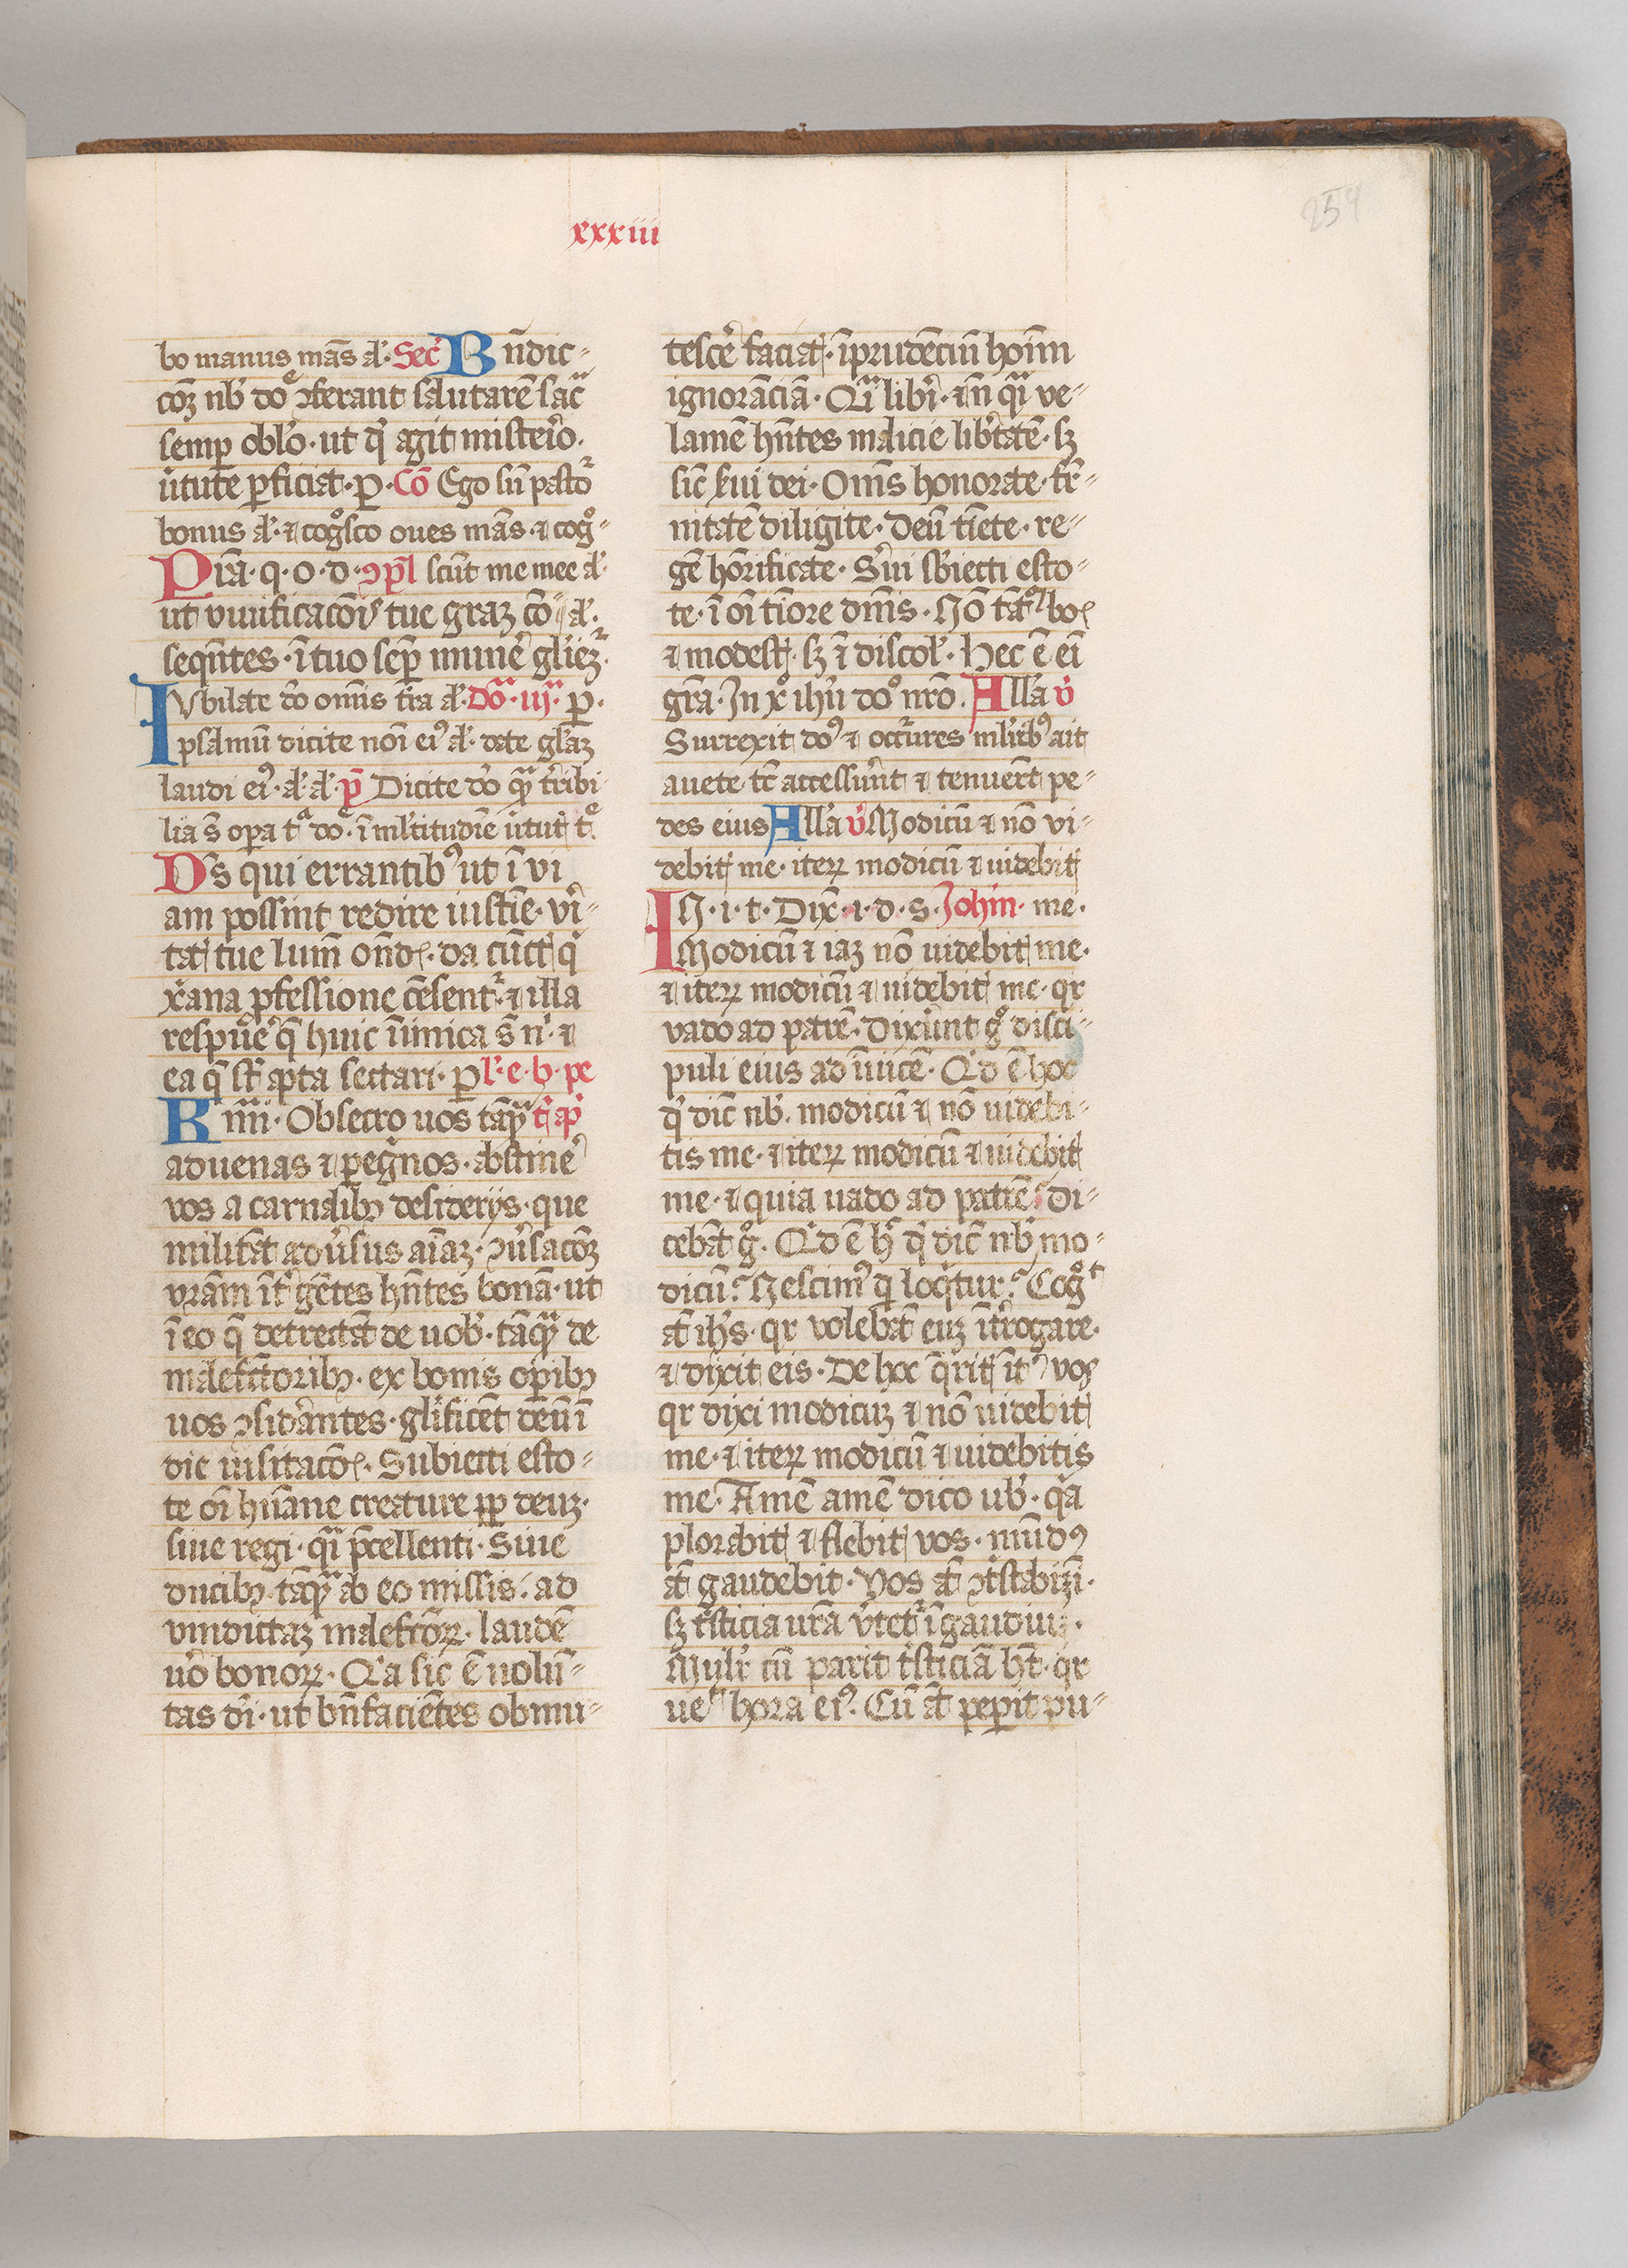 254
xxxiii
bo manus mãs al̃· Sec̃ Bñdic⸗
coẽz nb̾ dõe ꝯferant salutarẽ sac̃
semp oblõ· ut qd̾ agit misterio·
ũtute ꝑficiat· ꝑ· Cõ Ego sũ pastoʳ
bonus al̃· ⁊ cogᵒsco oues mẽas· ⁊ cogᵒ⸗
Prã· q· o· d· ꝯpl̃ scũt me mee al̃·
ut viuificacõis tue graz cõ al̃·
seqñtes· ĩ tuo sep̃ mũnẽ glĩez̃·
Jvbilate dõ omis tr̃a al̃· Doᵃ· iij· p̃·
psalmũ dicite nõi ei⁹ al̃· date gl̃az
laudi ei⁹· al̃· al̃· p̃ Dicite dõ qᵃ t̾ribi
lia s̃ opa tᵃ dõe· ĩ ml̾titudĩe ũtut̾ tᵉ·
Ds qui errantib⁹ ut ĩ vi
am possint redire iusticĩe· vi̾⸗
tat̾ tue lum̃ on̄d̾· da cũct̾ q̾
xp̃ana ꝓfessione cẽsentʳ· ⁊ illa
respũe q̃ huic ĩimica s̃ ñi· ⁊
ea q̃ st̾ ap̃ta sectari· ꝑ l̾· e· b· pe
Kmi· Obsecro uos tãqᵃ t̾ ap̾
aduenas ⁊ ꝑegⁱnos· abstinẽ
vos a carnalib; desiderijs· que
militãt adũsus aĩaz· ꝯũsacõz
vrãm ĩt̾ gẽtes hñtes bonã· ut
ĩ eo q̃ detrectãt de uob̾· tãqᵃ de
malefactorib;· ex bonis oꝑib;
uos ꝯsidãntes· glĩficẽt deũ ĩ
die uisitacõ· Subiecti esto⸗
te oĩ hũane creature ꝓp deuz·
siue regi· qᵃ p̃cellenti· Siue
ducib;· tãqᵃ ab eo missis: ad
vindictaz malefcõꝝ· laudẽ
ũo bonoꝝ· Qⁱa sic ẽ uolũ⸗
tas dĩ· ut bñfaciẽtes obmu⸗
tescẽ faciat̾· ĩprudẽciũ hoĩm
ignorãciã· Qᵃi libi̾· ⁊ ñ qᵃi ve⸗
lamẽ hñtes malicie lib̾tatẽ· sꝫ
sic̃ s̾ui dei· Om̃s honorate· fr̃⸗
nitatẽ diligite· Deũ tĩete· re⸗
gẽ hõrificate· S̾ui sb̾iecti esto⸗
te· ĩ oĩ tĩore dñis· Nõ tãtᵐ bo
⁊ modest̾· sꝫ ⁊ discol̾· Hec ẽ eĩ
grã· In xᵒ ihũ doᵒ nrõ. All̾a v̾
Surrexit do⁹ ⁊ occ̾ures ml̾ib⁹ ait
auete tc̃ accessũnt ⁊ tenuerũt pe⸗
des eius All̾a v̾ Modicũ ⁊ nõ vi⸗
debit̾ me· iteꝝ modicũ ⁊ uidebit̾
IN· i· t· Dix̃· i· d· s· Johin· me·
Modicũ ⁊ iaz nõ uidebit̾ me·
⁊ iteꝝ modicũ ⁊ uidebit̾ me· qr
vado ad patrẽ· Dixũnt gᵒ disci⸗
puli eius ad ĩuicẽ· Qⁱd ẽ hoc
qd̾ dic̃ nb̾· modicũ ⁊ nõ uidebi⸗
tis me· ⁊ iteꝝ modicũ ⁊ uidebit̾
me· ⁊ quia uado ad patrẽ? di⸗
cebãt gᵒ· Qⁱd ẽ hᶜ qd̾ dic̃ nb̾ mo⸗
dicũ? Nescim⁹ qⁱ loqⁱtur? Cogᵒᵗ
aũt ihs̃· qr volebãt euz ĩt̾rogare·
⁊ dixit eis· De hoc q̃rit̾ ĩt̾ vos
qr dixi modicuz ⁊ nõ uidebit̾
me· ⁊ iteꝝ modicũ ⁊ uidebitis
me· Amẽ amẽ dico ub̾· qⁱa
plorabit̾ ⁊ flebit̾ vos· mũdꝰ
aũt gaudebit· Vos aũt ꝯt̾stabĩzi·
sꝫ tⁱsticia urã ũtetʳ ĩ gaudiuz·
Muli̾r cũ parit tⁱsticiã hꝫt· qr
ueᵗ hora ei⁹· Cũ aũt peꝑit pu⸗